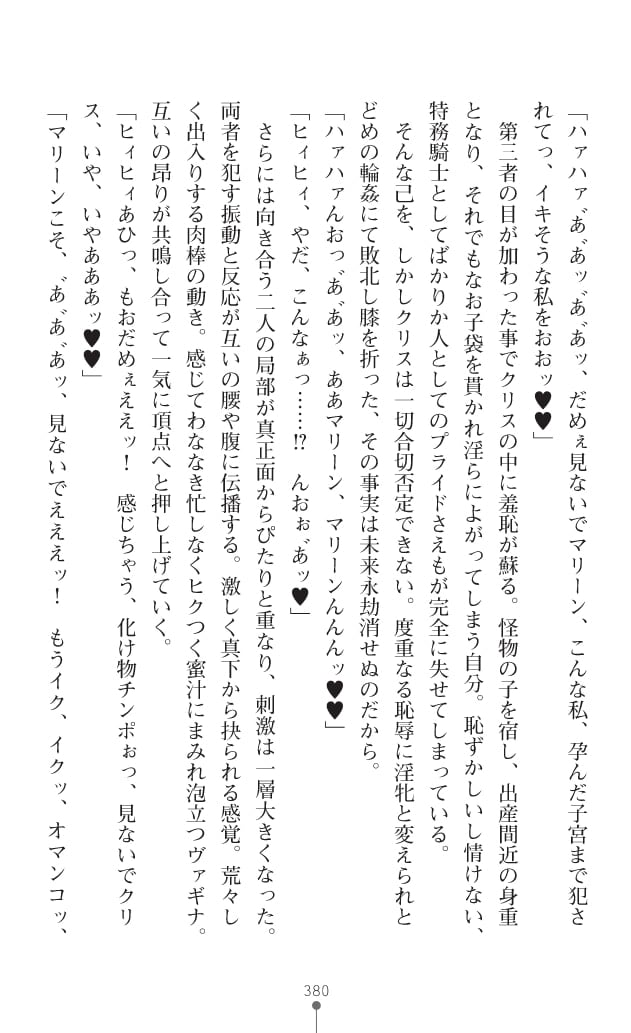 「ハァハァあ゛あ゛ッあ゛あ゛ッ、だめぇ見ないでマリーン、こんな私、孕んだ子宮まで犯さ
れてっ、イキそうな私をおおッ♥♥」
　第三者の目が加わった事でクリスの中に羞恥が蘇る。怪物の子を宿し、出産間近の身重
となり、それでもなお子袋を貫かれ淫らによがってしまう自分。恥ずかしいし情けない、
特務騎士としてばかりか人としてのプライドさえもが完全に失せてしまっている。
　そんな己を、しかしクリスは一切合切否定できない。度重なる恥辱に淫牝と変えられと
どめの輪姦にて敗北し膝を折った、その事実は未来永劫消せぬのだから。
「ハァハァんおっあ゛あ゛ッ、ああマリーン、マリーンんんんッ♥♥」
「ヒィヒィ、やだ、こんなぁっ……!?　んおぉあ゛ッ♥」
　さらには向き合う二人の局部が真正面からぴたりと重なり、刺激は一層大きくなった。
両者を犯す振動と反応が互いの腰や腹に伝播する。激しく真下から抉られる感覚。荒々し
く出入りする肉棒の動き。感じてわななき忙しなくヒクつく蜜汁にまみれ泡立つヴァギナ。
互いの昂りが共鳴し合って一気に頂点へと押し上げていく。
「ヒィヒィあひっ、もおだめぇええッ！　感じちゃう、化け物チンポぉっ、見ないでクリ
ス、いや、いやあああッ♥♥」
「マリーンこそ、あ゛あ゛あ゛ッ、見ないでえええッ！　もうイク、イクッ、オマンコッ、
380